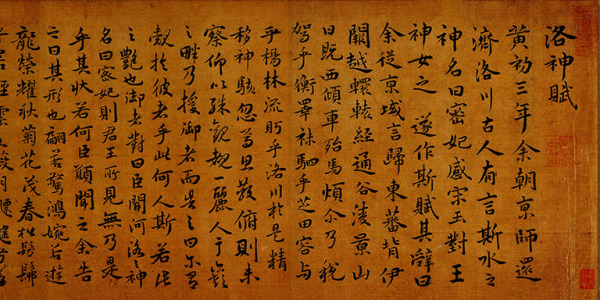 洛神賦
黃初三年余朝京師還
濟洛川古人有言斯水之
神名曰宓妃感宋玉對王
神女之 遂作斯賦其辭曰
余從京域言歸東藩背伊
闕越轘轅經通谷陵景山
日既西傾車殆馬煩尔乃稅
駕乎衡皋秣駟乎芝田容與
乎楊林流眄乎洛川於是精
移神駭忽焉思散俯則未
察仰以殊觀覩一麗人于巖
之畔乃援御者而告之曰尔有
覿於彼者乎此何人斯若此
之艷也御者對曰臣聞河洛之神
名曰宓妃則君王所見無乃是
乎其狀若何臣願聞之余告
之曰其形也翩若驚鴻婉若遊
龍榮耀秋菊花茂春松髣髴